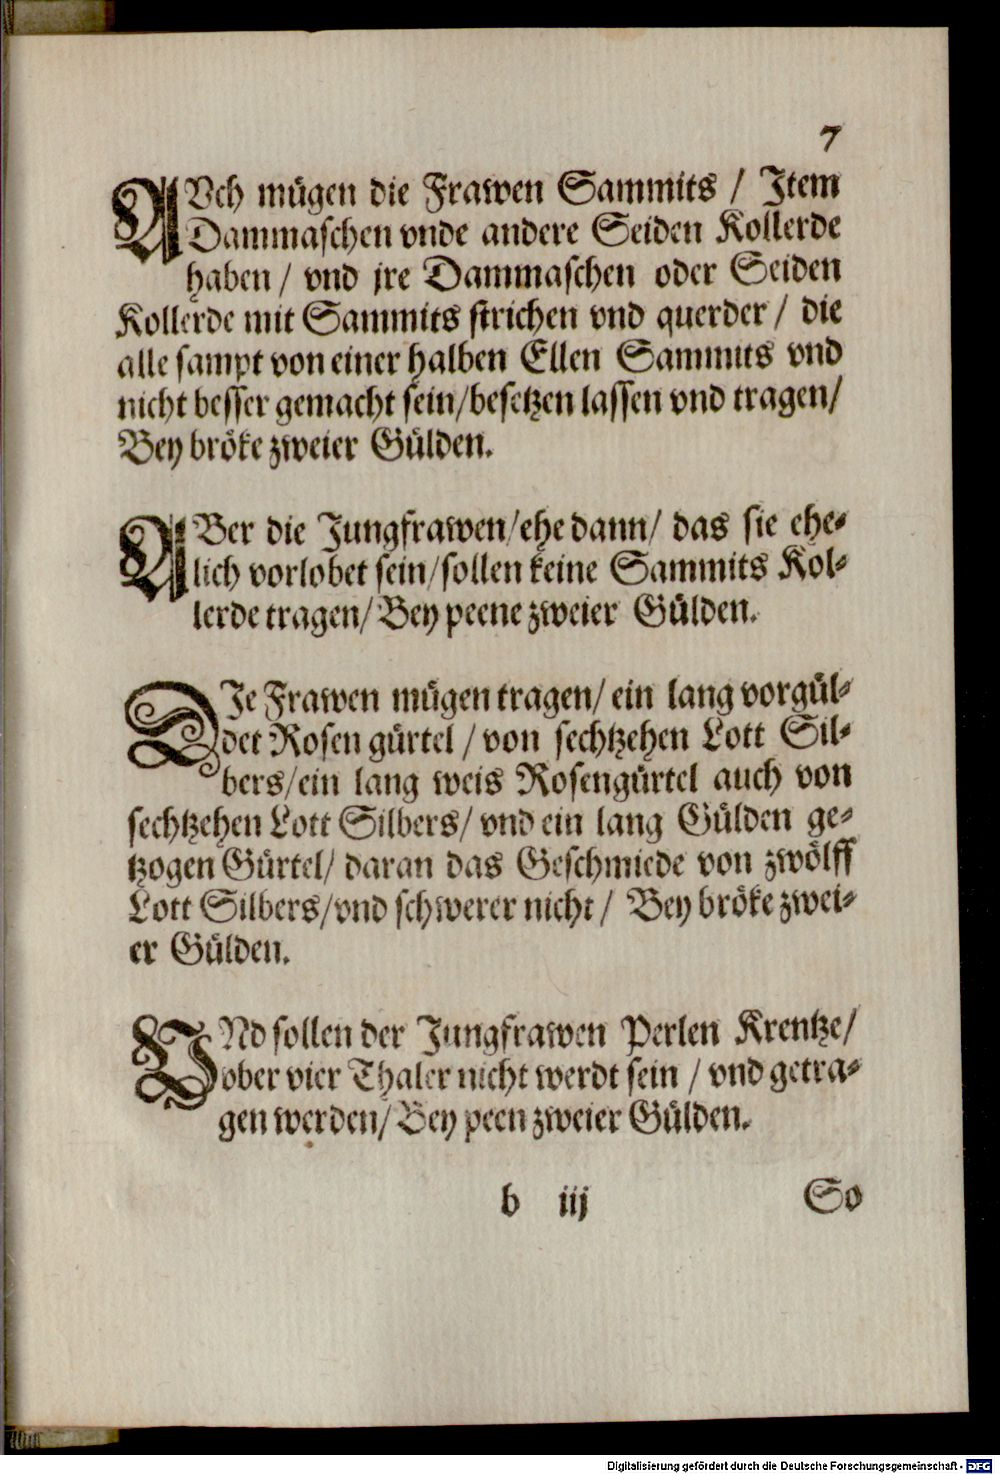 7
AVch mügen die Frawen Sammits / Item
Dammaschen vnde andere Seiden Kollerde
haben / vnd jre Dammaschen oder Seiden
Kollerde mit Sammits strichen vnd querder / die
alle sampt von einer halben Ellen Sammits vnd
nicht besser gemacht sein/besetzen lassen vnd tragen/
Bey bröke zweier Gülden.
ABer die Jungfrawen/ehe dann/ das sie ehe-
lich vorlobet sein/sollen keine Sammits Kol-
lerde tragen/ Bey peene zweier Gülden.
DIe Frawen mügen tragen/ ein lang vorgül-
det Rosen gürtel / von sechtzehen Lott Sil-
bers/ein lang weis Rosengürtel auch von
sechtzehen Lott Silbers/ vnd ein lang Gülden ge-
tzogen Gürtel/ daran das Geschmiede von zwölff
Lott Silbers/vnd schwerer nicht / Bey bröke zwei-
er Gülden.
VNd sollen der Jungfrawen Perlen Krentze/
ober vier Thaler nicht werdt sein / vnd getra-
gen werden/ Bey peen zweier Gülden.
b iij So
Digitalisierung gefördert durch die Deutsche Forschungsgemeinschaft - DFG